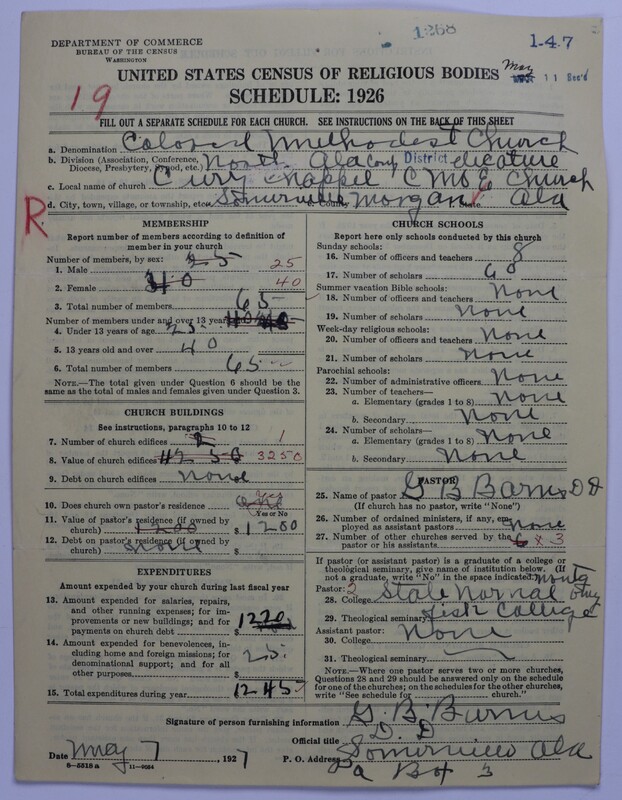 1268
1-4-7
DEPARTMENT OF COMMERCE
BUREAU OF THE CENSUS
WASHINGTON
UNITED STATES CENSUS OF RELIGIOUS BODIES
May 11 Rec'd
SCHEDULE: 1926
19
FILL OUT A SEPARATE SCHEDULE FOR EACH CHURCH. SEE INSTRUCTIONS ON THE BACK OF THIS SHEET
a. Denomination Colored Methodest Church
b. Division (Association, Conference, Diocese, Presbytery, Synod, etc.) North Ala Conf District dicature
c. Local name of church Cury Chappel C M E Church
d. City, town, village, or township, etc. Somerville e. County Morgan State Ala
R.
MEMBERSHIP
Report number of members according to definition of
member in your church
Number of members, by sex:
1. Male 25 25
2. Female 40 40
3. Total number of members 65
Number of members under and over 13 years
4. Under 13 years of age 25
5. 13 years old and over 40
6. Total number of members 65
NOTE.—The total given under Question 6 should be
the same as the total of males and females given under Question 3.
CHURCH BUILDINGS
See instructions, paragraphs 10 to 12
7. Number of church edifices 2 1
8. Value of church edifices 3250
9. Debt on church edifices none
10. Does church own pastor's residence? Yes
Yes or No
11. Value of pastor's residence (if owned by
church) 1200 $ 1200
12. Debt on pastor's residence (if owned by
church) none
EXPENDITURES
Amount expended by your church during last fiscal year
13. Amount expended for salaries, repairs,
and other running expenses; for im-
provements or new buildings; and for
payments on church debt $ 1220
14. Amount expended for benevolences,
including home and foreign missions; for
denominational support; and for all
other purposes $ 25
15. Total expenditures during year 1245
CHURCH SCHOOLS
Report here only schools conducted by this church
Sunday schools:
16. Number of officers and teachers 8
17. Number of scholars 60
Summer vacation Bible schools:
18. Number of officers and teachers None
19. Number of scholars None
Week-day religious schools:
20. Number of officers and teachers None
21. Number of scholars None
Parochial schools:
22. Number of administrative officers None
23. Number of teachers—
a. Elementary (grades 1 to 8) None
b. Secondary None
24. Number of scholars—
a. Elementary (grades 1 to 8) None
b. Secondary None
PASTOR
25. Name of pastor G B Barnes D D
(If church has no pastor, write "None")
26. Number of ordained ministers, if any, em-
ployed as assistant pastors none
27. Number of other churches served by the
pastor or his assistants 3
If pastor (or assistant pastor) is a graduate of a college or
theological seminary, give name of institution below. (If
not a graduate, write "No" in the space indicated.)
Pastor:
28. College State Normal
29. Theological seminary Fish College
Assistant pastor: None
30. College
31. Theological seminary
NOTE.—Where one pastor serves two or more churches,
Questions 28 and 29 should be answered only on the schedule
for one of the churches; on the schedules for the other churches,
write "See schedule for ____ church."
Signature of person furnishing information G. B. Barnes
Official title D. D
Date May 7, 1927 P. O. Address Somerville Ala
B# 3
6—5518 a 11—9064